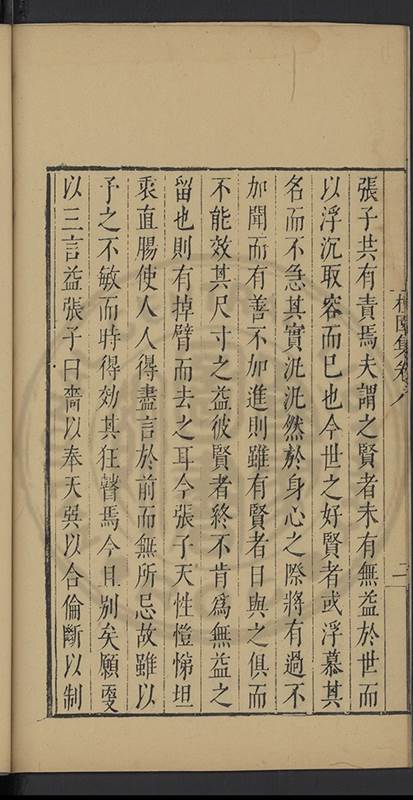 張子共有責焉夫謂之賢者未有無益於世而
以浮沉取容而巳也今世之好賢者或浮慕其
名而不急其實泚泚然於身心之際將有過不
加聞而有善不加進則雖有賢者日與之俱而
不能效其尺寸之益彼賢者終不肯爲無益之
留也則有掉臂而去之耳今張子天性愷悌坦
乘直腸使人人得盡言於前而無所忌故雖以
予之不敏而時得効其狂瞽焉今且别矣願更
以三言益張子曰嗇以奉天巽以合倫斷以制
園集卷八
二